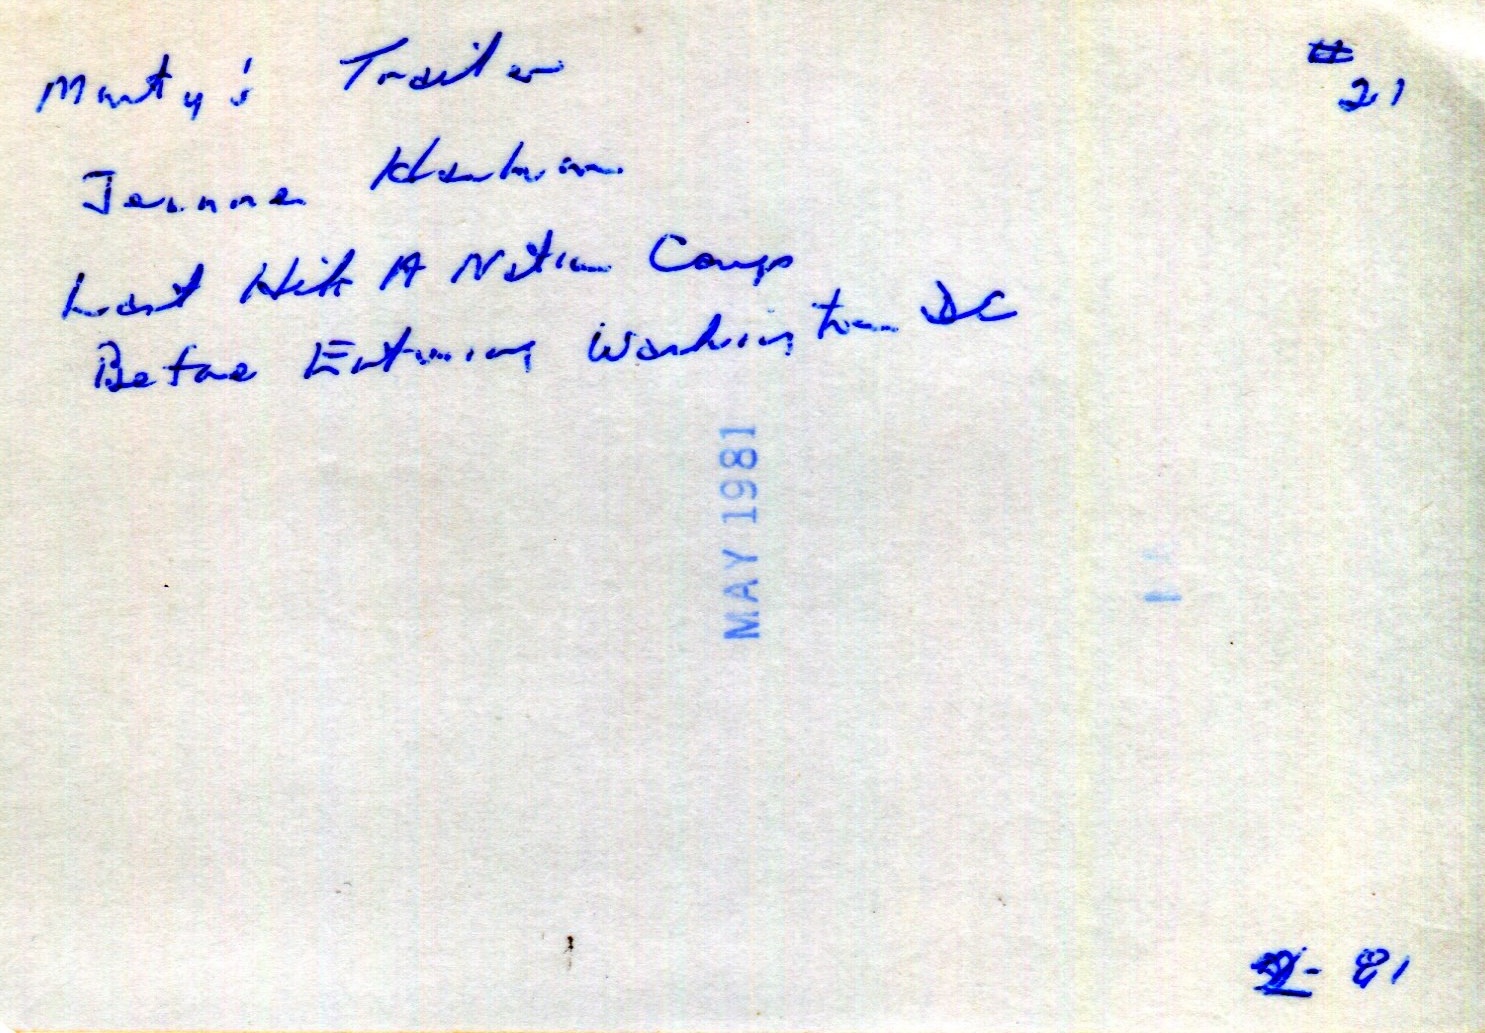 #
21
Marty's Trailer
Jeanne
Last Hik A Nation Camp
Before Entering Washington DC
MAY 1981
81